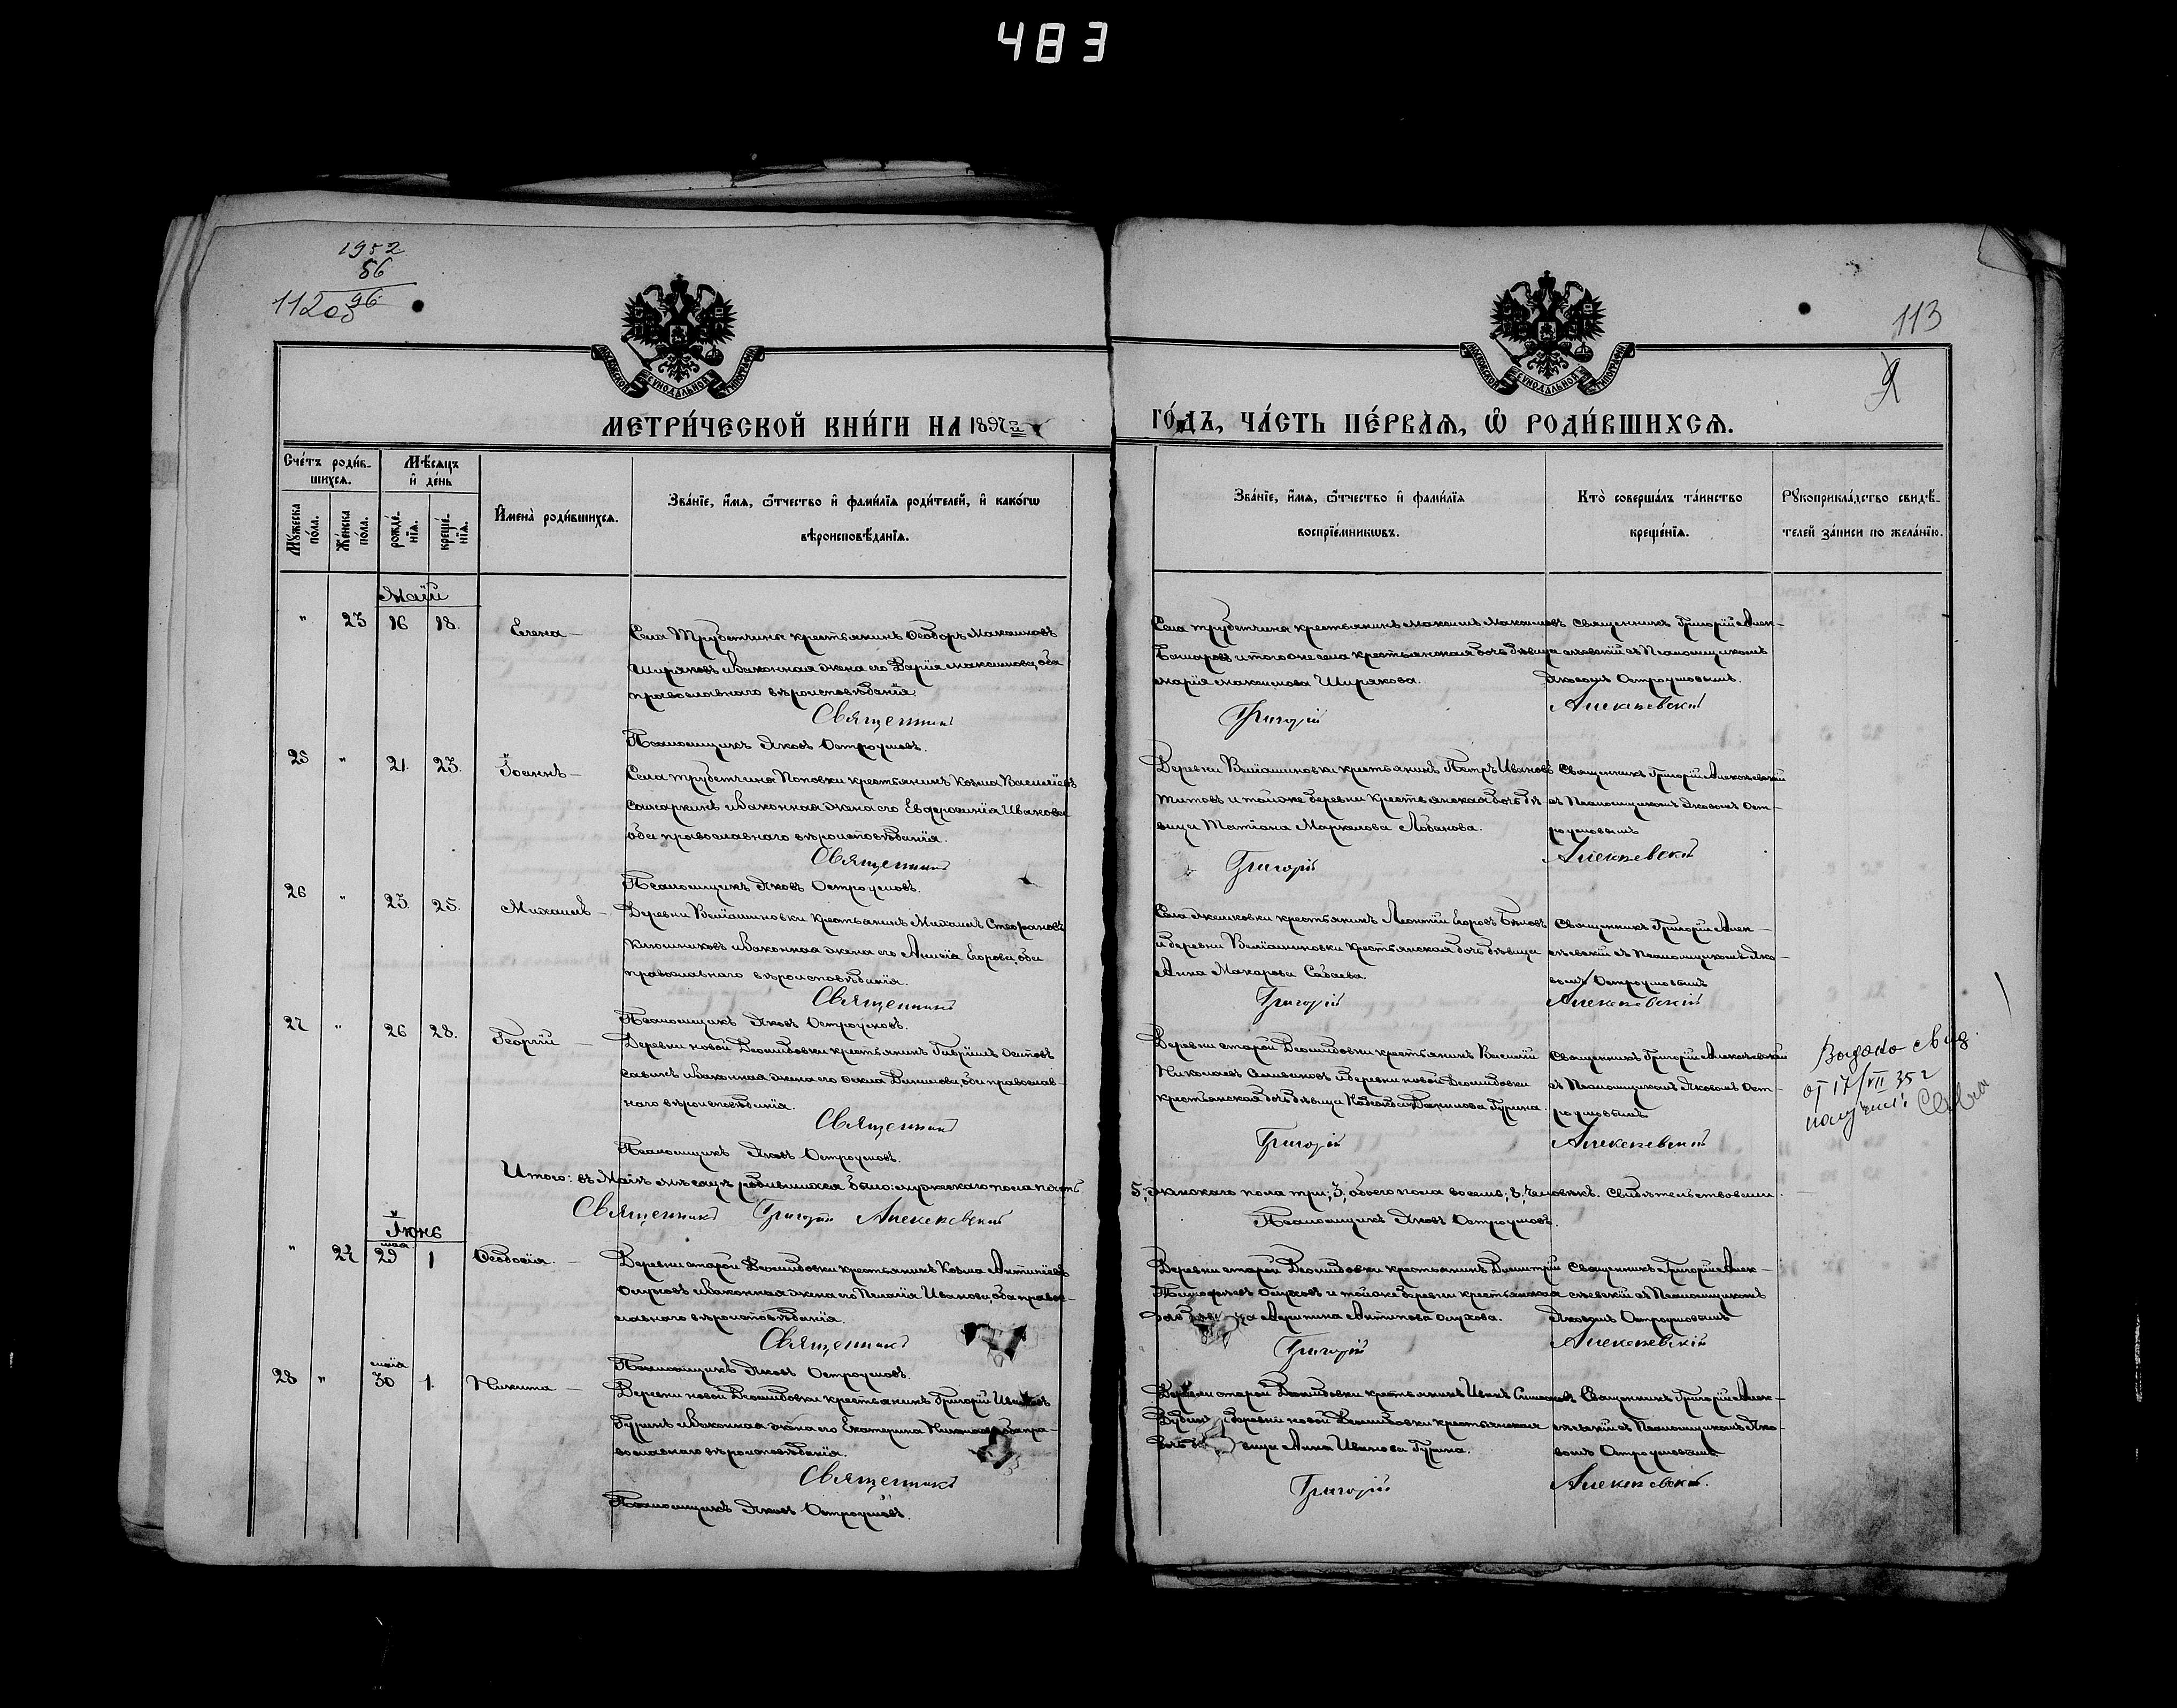 483
1952
86
96
112об
113
9
МОСКОВСКОЙ СУНОДАЛЬНОЙ ТИПОГРАФІИ
МОСКОВСКОЙ СУНОДАЛЬНОЙ ТИПОГРАФІИ
МЕТРИ́ЧЕСКОЙ КНИ́ГИ НА 1897й
ГО́ДЪ, ЧА́СТЬ ПЕ́РВАЯ, Ѡ РОДИ́ВШИХСЯ.
Сче́тъ роди́в-
шихся.
Мѣ́сяцъ
и҆ де́нь
Мꙋ́жеска
по́ла.
Же́нска
по́ла.
рожде́-
нїя.
креще́-
нїя.
И҆мена̀ роди́вшихся.
Зва́нїе, и҆́мя, ѻ҆́тчество и҆ фами́лїя роди́телей, и҆ како́гѡ
вѣроисповѣ́данїя.
Зва́нїе, и҆́мя, ѻ҆́тчество и҆ фами́лїя
воспрїе́мникѡвъ.
Кто̀ соверша́лъ та́инство
креще́нїя.
Рꙋкоприкла́дство свидѣ́-
телей за́писи по жела́нїю.
Маій
" 23 16 18. Елена —
Села Трубетчины крестьянинъ Ѳеодоръ Максимовъ
Ширяковъ и законная жена его Дарія Максимова, оба
православнаго вѣроисповѣданія.
Священникъ
Псаломщикъ Яковъ Остроумовъ.
Села Трубетчины крестьянинъ Максимъ Максимовъ
и того же села крестьянская дочь дѣвица
Марія Максимова Ширякова.
Григорій
Священникъ Григорій Алек-
сѣевскій съ Псаломщикомъ
Яковомъ Остроумовымъ.
Алексѣевскій
25 " 21. 23. Іоаннъ —
Села Трубетчина Поповки крестьянинъ Козма Васильевъ
и законная жена его Евфросинія Иванова
оба православнаго вѣроисповѣданія.
Священникъ
Псаломщикъ Яковъ Остроумовъ.
Деревни крестьянинъ Петръ Ивановъ
Титовъ и тойже деревни крестьянская дочь дѣ-
вица Татіана Маркелова Лобанова.
Григорій
Священникъ Григорій Алексѣевскій
съ Псаломщикомъ Яковомъ Ост-
роумовымъ
Алексѣевскій
26 " 23. 25. Михаилъ —
Деревни крестьянинъ Михаилъ Стефановъ
Ключниковъ и законная жена его Анисія Егорова, оба
православнаго вѣроисповѣданія.
Священникъ
Псаломщикъ Яковъ Остроумовъ.
Села крестьянинъ Леонтій Егоровъ
и деревни крестьянская дочь дѣвица
Анна Макарова Сабаева.
Григорій
Священникъ Григорій Алек-
сѣевскій съ Псаломщикомъ Яко-
вомъ Остроумовымъ
Алексѣевскій
27 " 26 28. Георгій —
Деревни новой Демидовки крестьянинъ Гавріилъ Осиповъ
Савинъ и законная жена его Ѳекла Данилова, оба православ-
наго вѣроисповѣданія.
Священникъ
Псаломщикъ Яковъ Остроумовъ.
Деревни старой Демидовки крестьянинъ Василій
Николаевъ и деревни новой Демидовки
крестьянская дочь дѣвица Данилова Гурина.
Григорій
Священникъ Григорій Алексѣевскій
съ Псаломщикомъ Яковомъ Ост-
роумовымъ
Алексѣевскій
Выдано свид.
от 17/VII 35 г
получил:
Итого: въ Маіѣ мѣсяцѣ родившихся было: мужескаго пола пять
5, женскаго пола три, 3, обоего пола восемь, 8, человѣкъ. Свидѣтельствовали
Священникъ Григорій Алексѣевскій
Псаломщикъ Яковъ Остроумовъ.
Іюнь
мая
" 24 29 1 Ѳеодосія. —
Деревни старой Демидовки крестьянинъ Козма Антипіевъ
и законная жена его Пелагія Иванова, оба право-
славнаго вѣроисповѣданія.
Священникъ
Псаломщикъ Яковъ Остроумовъ.
Деревни старой Демидовки крестьянинъ Димитрій
Тимофеевъ и тойже деревни крестьянская
Антипова
Григорій
Священникъ Григорій Алек-
сѣевскій съ Псаломщикомъ
Яковомъ Остроумовымъ
Алексѣевскій
маія
28 " 30 1. Никита —
Деревни новой Демидовки крестьянинъ Григорій Ивановъ
Гуринъ и законная жена его Екатерина оба пра-
вославнаго вѣроисповѣданія.
Священникъ
Псаломщикъ Яковъ Остроумовъ.
Деревни старой Демидовки крестьянинъ Иванъ
и деревни новой Демидовки крестьянская
Анна Иванова Гурина.
Григорій
Священникъ Григорій Алек-
сѣевскій съ Псаломщикомъ Яко-
вомъ Остроумовымъ
Алексѣевскій.